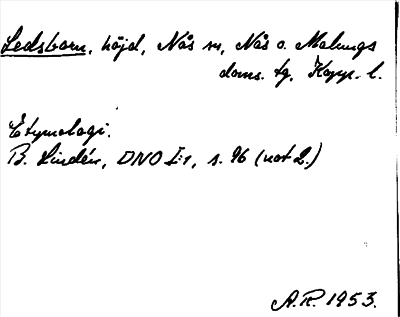 Ledsbarn, höjd, Nås sn, Nås o. Malungs
doms. tg, Kopp. l.
Etymologi.
B. Lindén, DNO I:1, s. 96 (not 2.)
A.R. 1953.